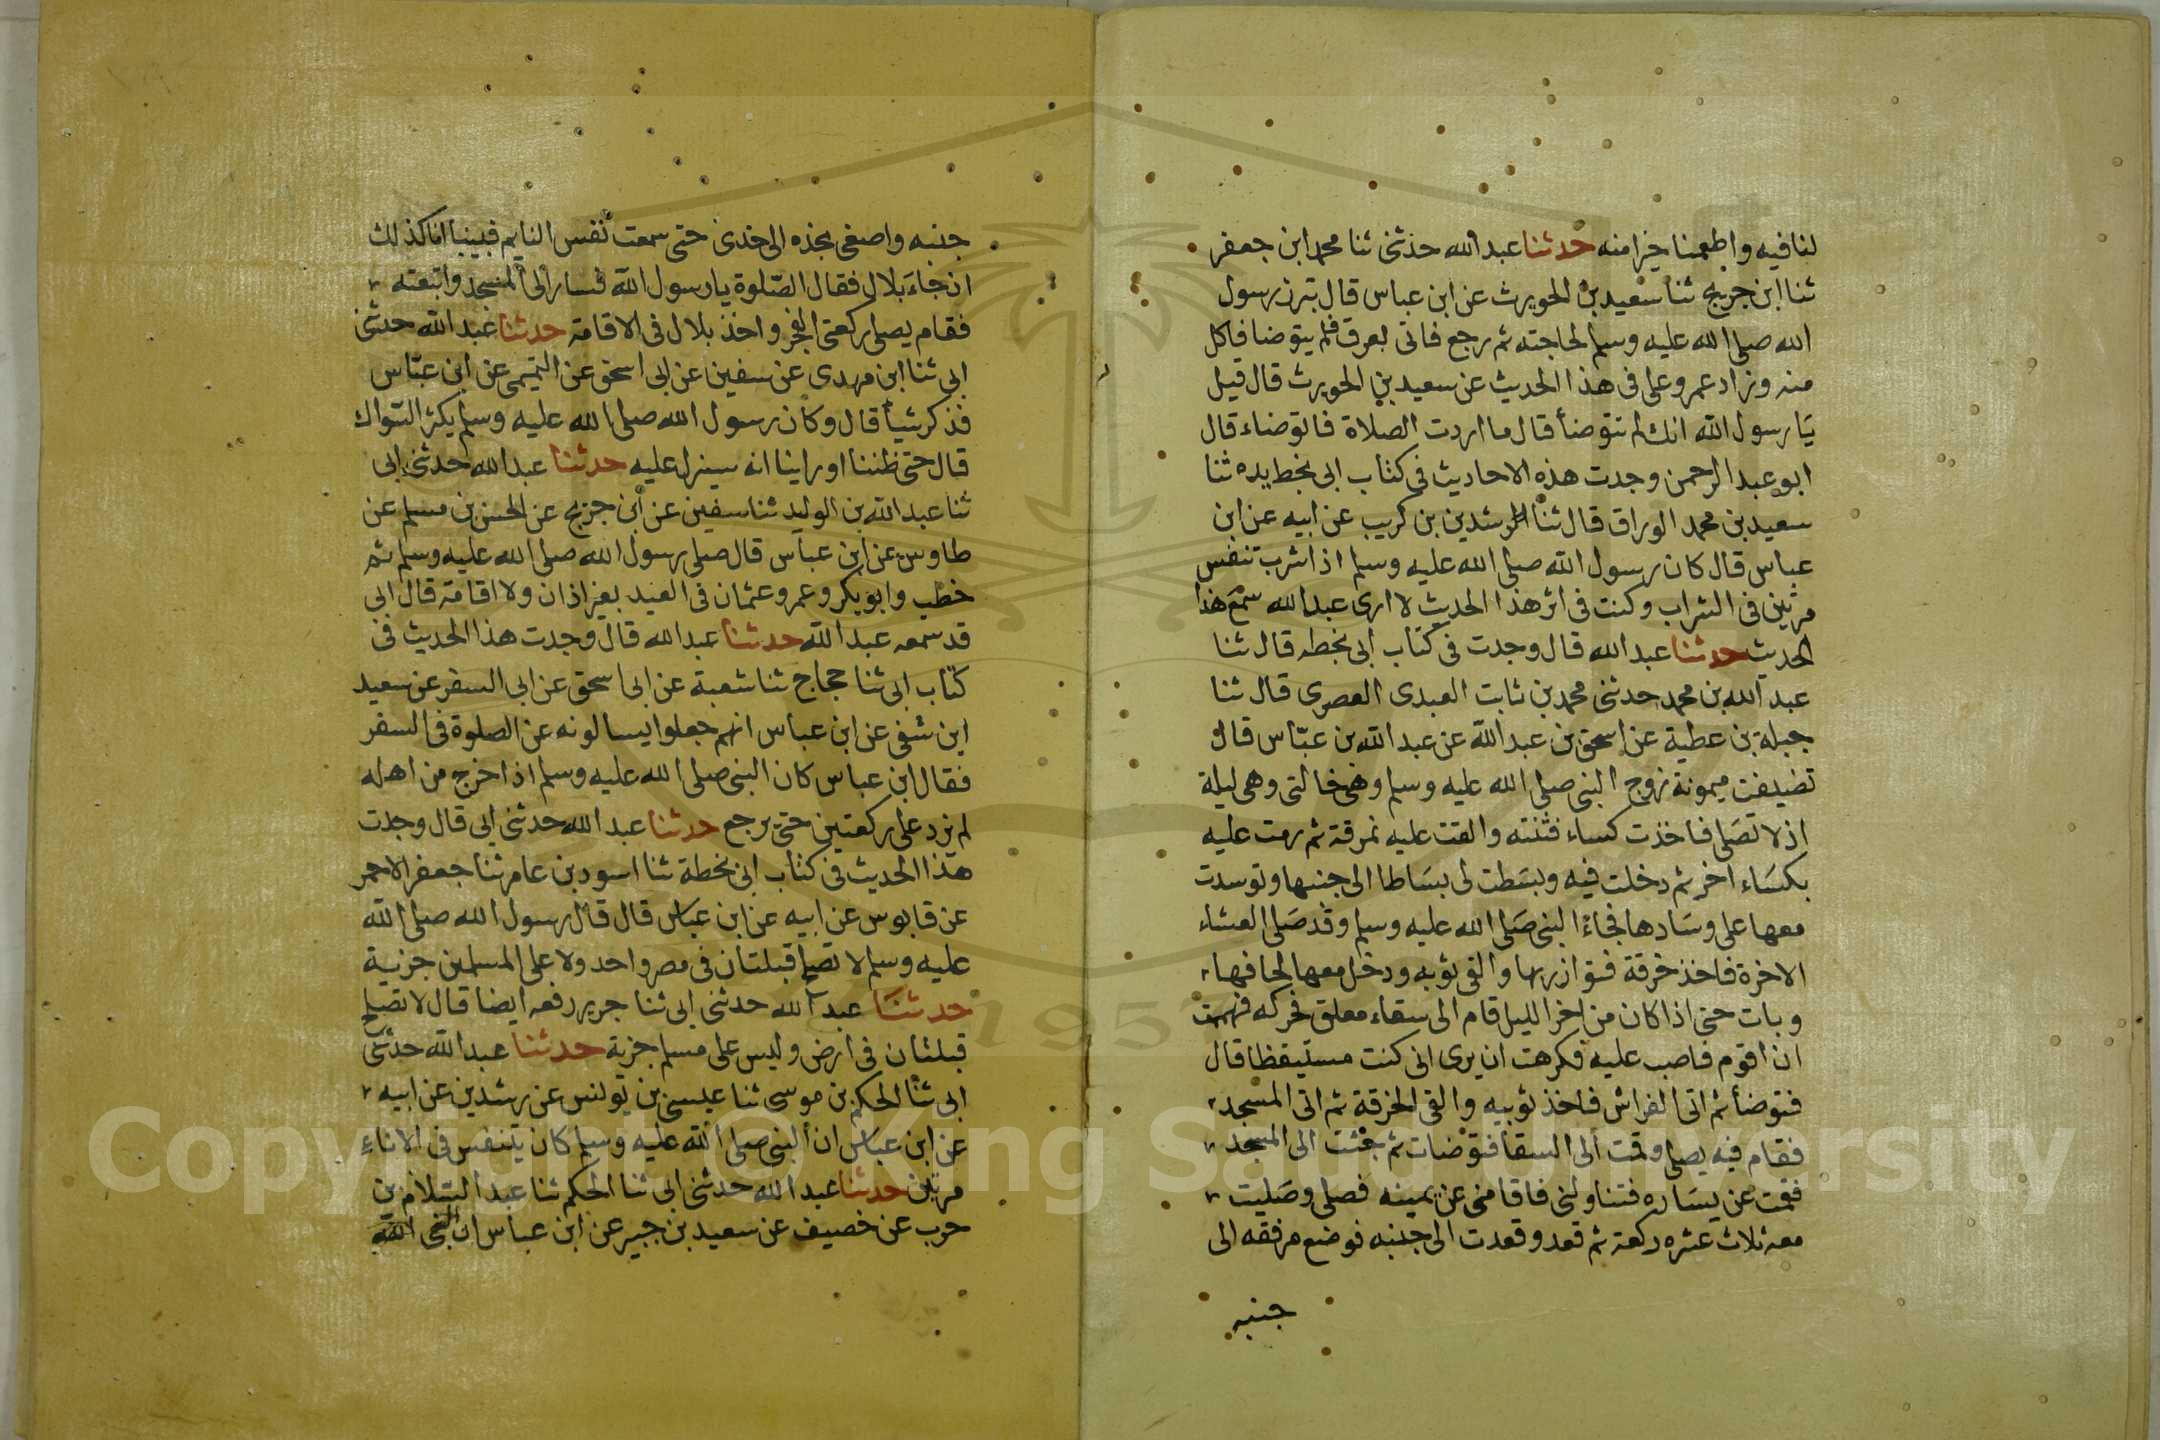 لنا فيه واطعمنا خيرا منه حدثنا عبد الله حدثنى ثنا محمد ابن جعفر
ثنا ابن جريج ثنا سعيد بن الحويرث عن ابن عباس قال تبرز رسول
الله صلى الله عليه وسلم لحاجته ثم رجع فاتى بعرق فلم يتوضا فاكل
منه وزاد عمرو على فى هذا الحديث عن سعيد بن الحويرث قال قيل
يا رسول الله انك لم تتوضأ قال ما اردت الصلاة فاتوضاء قال
ابو عبد الرحمن وجدت هذه الاحاديث فى كتاب ابى بخط يده ثنا
سعيد بن محمد الوراق قال ثنا الرشدين بن كريب عن ابيه عن ابن
عباس قال كان رسول الله صلى الله عليه وسلم اذا شرب تنفس
مرتين فى الشراب وكنت فى اثر هذا الحديث لا ارى عبد الله سمع هذا
الحديث حدثنا عبد الله قال وجدت فى كتاب ابى بخطه قال ثنا
عبد الله بن محمد حدثنى محمد بن ثابت العبدى العصرى قال ثنا
جبلة بن عطية عن اسحق بن عبد الله عن عبد الله بن عباس قال
تضيفت ميمونة زوج النبى صلى الله عليه وسلم وهى خالتى وهى ليلة
اذ لا تصلى فاخذت كساء فثنته والقت عليه نمرقة ثم رمت عليه
بكساء اخر ثم دخلت فيه وبسطت لى بساطا الى جنبها وتوسدت
معها على وسادها فجاء النبى صلى الله عليه وسلم وقد صلى العشاء
الاخرة فاخذ خرقة فتوازر بها والقى ثوبه ودخل معها لحافها
وبات حتى اذا كان من اخر الليل قام الى سقاء معلق فحركه فهممت
ان اقوم فاصب عليه فكرهت ان يرى انى كنت مستيقظا قال
فتوضأ ثم اتى الفراش فاخذ ثوبيه والقى الخرقة ثم اتى المسجد
فقام فيه يصلى وقمت الى السقا فتوضات ثم جئت الى المسجد
فقمت عن يساره فتناولنى فاقامنى عن يمينه فصلى وصليت
معه ثلاث عشره ركعة ثم قعد وقعدت الى جنبه فوضع مرفقه الى
جنبه
جنبه واصغى بخده الى خدى حتى سمعت نفس النايم فبينا انا كذلك
ان جاء بلال فقال الصلوة يا رسول الله فسار الى المسجد واتبعته
فقام يصلى ركعتى الفجر واخذ بلال فى الاقامة حدثنا عبد الله حدثنى
ابى ثنا ابن مهدى عن سفين عن ابى اسحق عن التميمى عن ابن عباس
فذكر شيأ قال وكان رسول الله صلى الله عليه وسلم يكثر السواك
قال حتى ظننا او راينا انه سينزل عليه حدثنا عبد الله حدثنى ابى
ثنا عبد الله بن الوليد ثنا سفين عن ابن جريج عن الحسن بن مسلم عن
طاوس عن ابن عباس قال صلى رسول الله صلى الله عليه وسلم ثم
خطب وابو بكر وعمر وعثمان فى العيد بغير اذان ولا اقامة قال ابى
قد سمعه عبد الله حدثنا عبد الله قال وجدت هذا الحديث فى
كتاب ابى ثنا حجاج ثنا شعبة عن ابى اسحق عن ابى السفر عن سعيد
ابن شفى عن ابن عباس انهم جعلوا يسالونه عن الصلوة فى السفر
فقال ابن عباس كان النبى صلى الله عليه وسلم اذا خرج من اهله
لم يزد على ركعتين حتى يرجع حدثنا عبد الله حدثنى ابى قال وجدت
هذا الحديث فى كتاب ابى بخطه ثنا اسود بن عامر ثنا جعفر الاحمر
عن قابوس عن ابيه عن ابن عباس قال قال رسول الله صلى الله
عليه وسلم لا تصلح قبلتان فى مصر واحد ولا على المسلمين جزية
حدثنا عبد الله حدثنى ابى ثنا جرير رفعه ايضا قال لا تصلح
قبلتان فى ارض وليس على مسلم جزية حدثنا عبد الله حدثنى
ابى ثنا الحكم بن موسى ثنا عيسى بن يونس عن رشدين عن ابيه
عن ابن عباس ان النبى صلى الله عليه وسلم كان يتنفس فى الاناء
مرتين حدثنا عبد الله حدثنى ابى ثنا الحكم ثنا عبد السلام بن
حرب عن خصيف عن سعيد بن جبير عن ابن عباس ان النبى الله
Copyright © King Saud University
1957